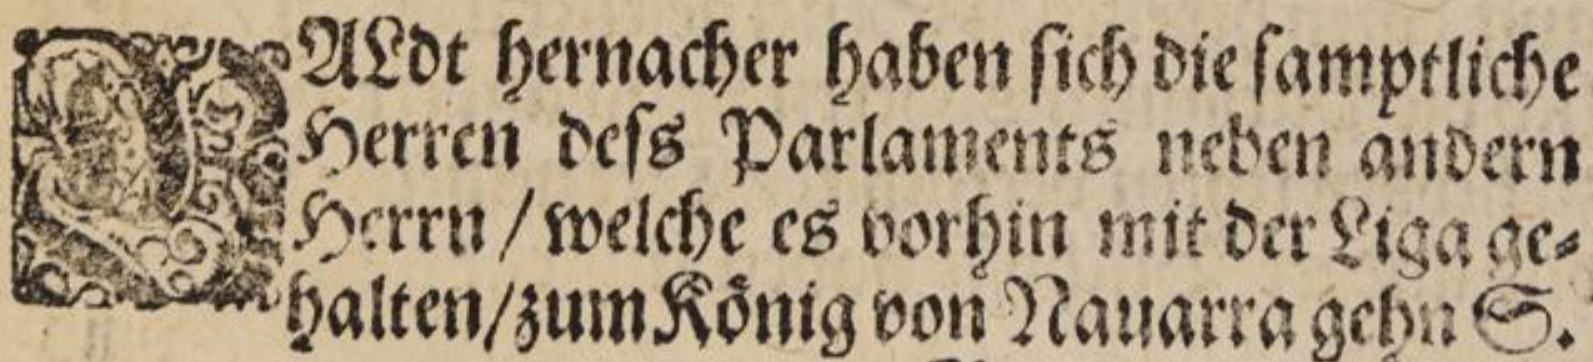 BALdt hernacher haben ſich die ſamptliche
Herren deſs Parlaments neben andern
Herrn / welche es vorhin mit der Liga ge⸗
halten / zum König von Nauarra gehn S.